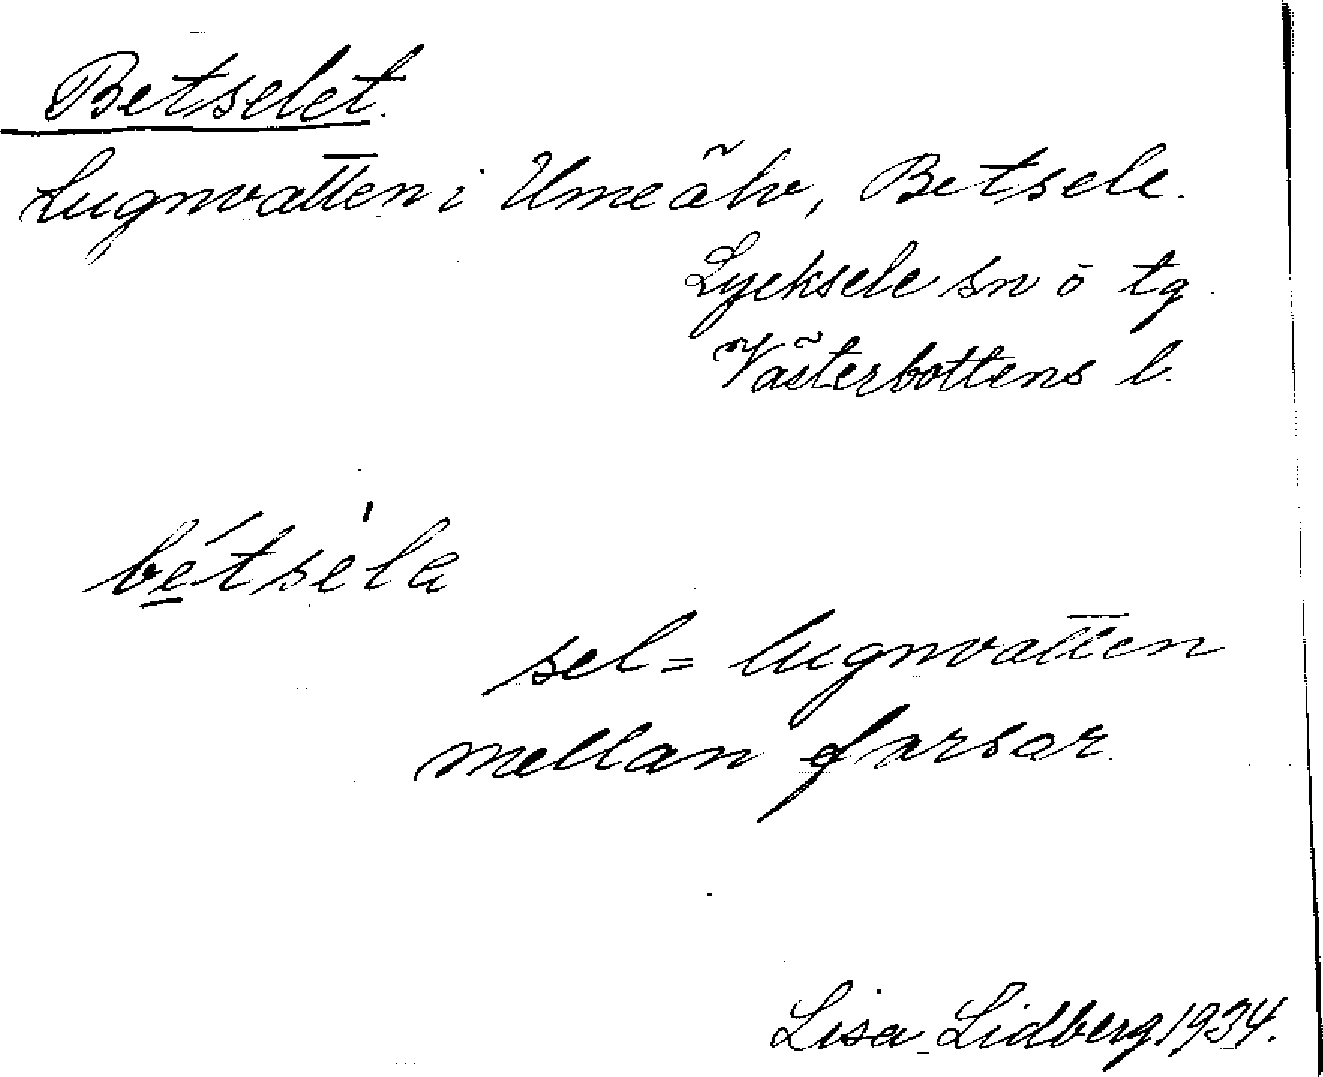 Betselet.
Lugnvatten i Umeälv, Betsele.
Lycksele sn o tg.
Västerbottens l.
bétsela
sel = lugnvatten
mellan forsar.
Lisa Lidberg 1934.